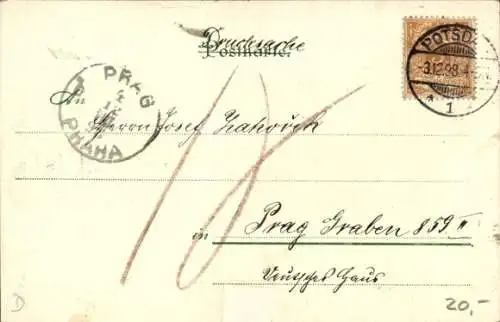 Drucksache
Postkarte.
POTSDAM
-3.12.98.4-
* 1
PRAG
PRAHA
An
Herrn Josef Zahořik
18
in Prag Graben 859 II
Deutsches Haus
D
20,-